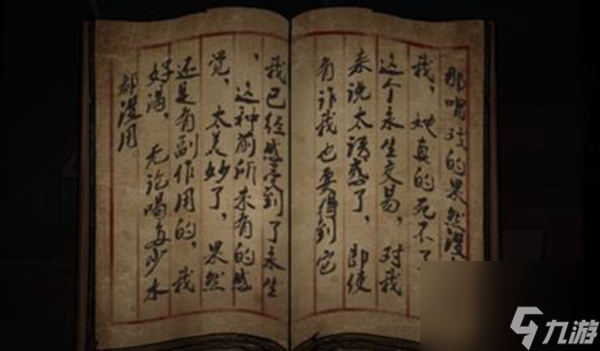 那唱戏的果然没
我，她真的死不了
这个永生交易，对我
来说太诱惑了，即使
有诈我也要得到它
我已经感受到了永生
，这种前所未有的感
觉，太美妙了，果然
还是有副作用的，我
好渴，无论喝多少水
都没用。
九游